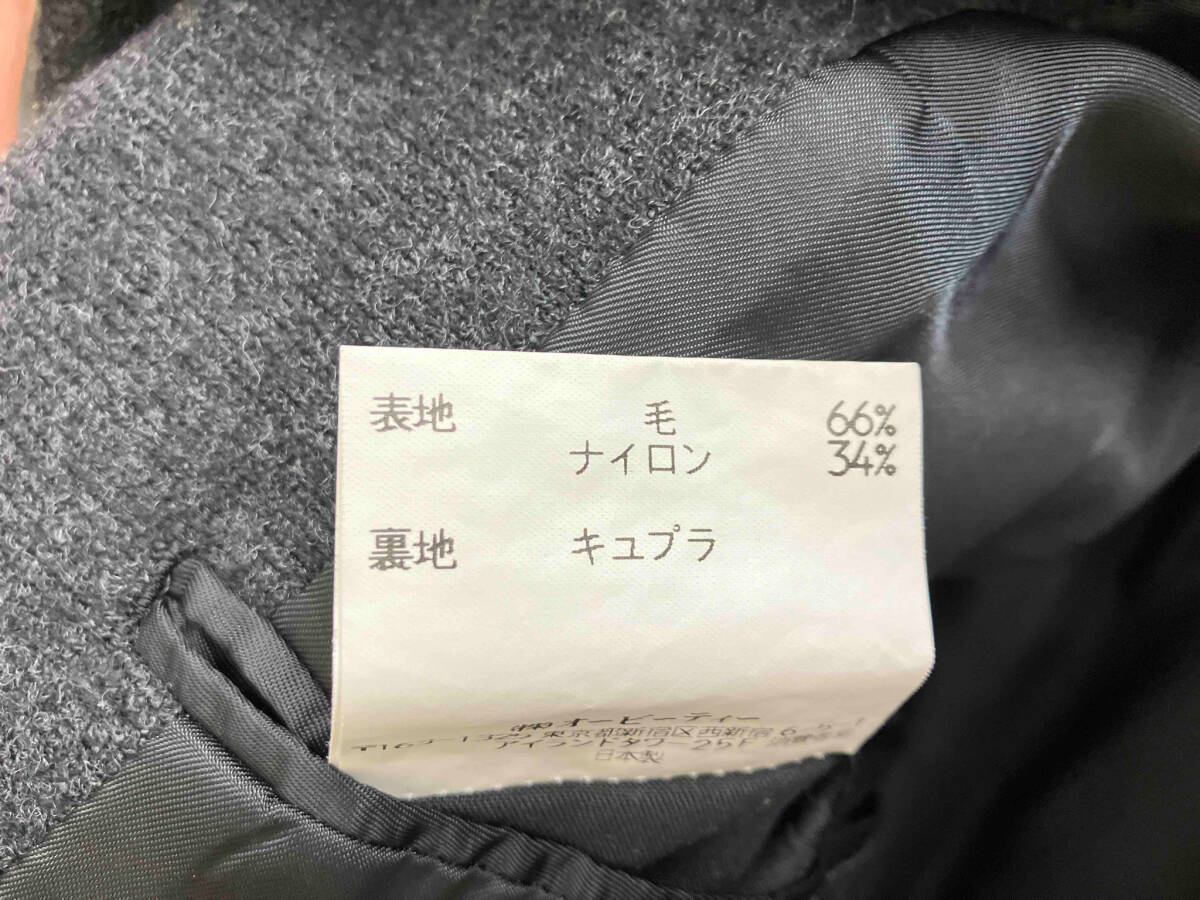 表地 毛 66%
ナイロン 34%
裏地 キュプラ
㈱オーピーティー
〒163-1325 東京都新宿区西新宿6-5-1
アイランドタワー25F
日本製